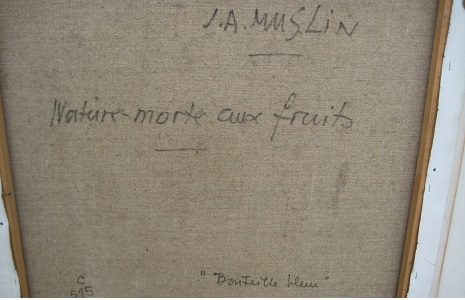 J.A. MUSLIN
Nature-morte aux fruits
C
515
"Bouteille bleue"